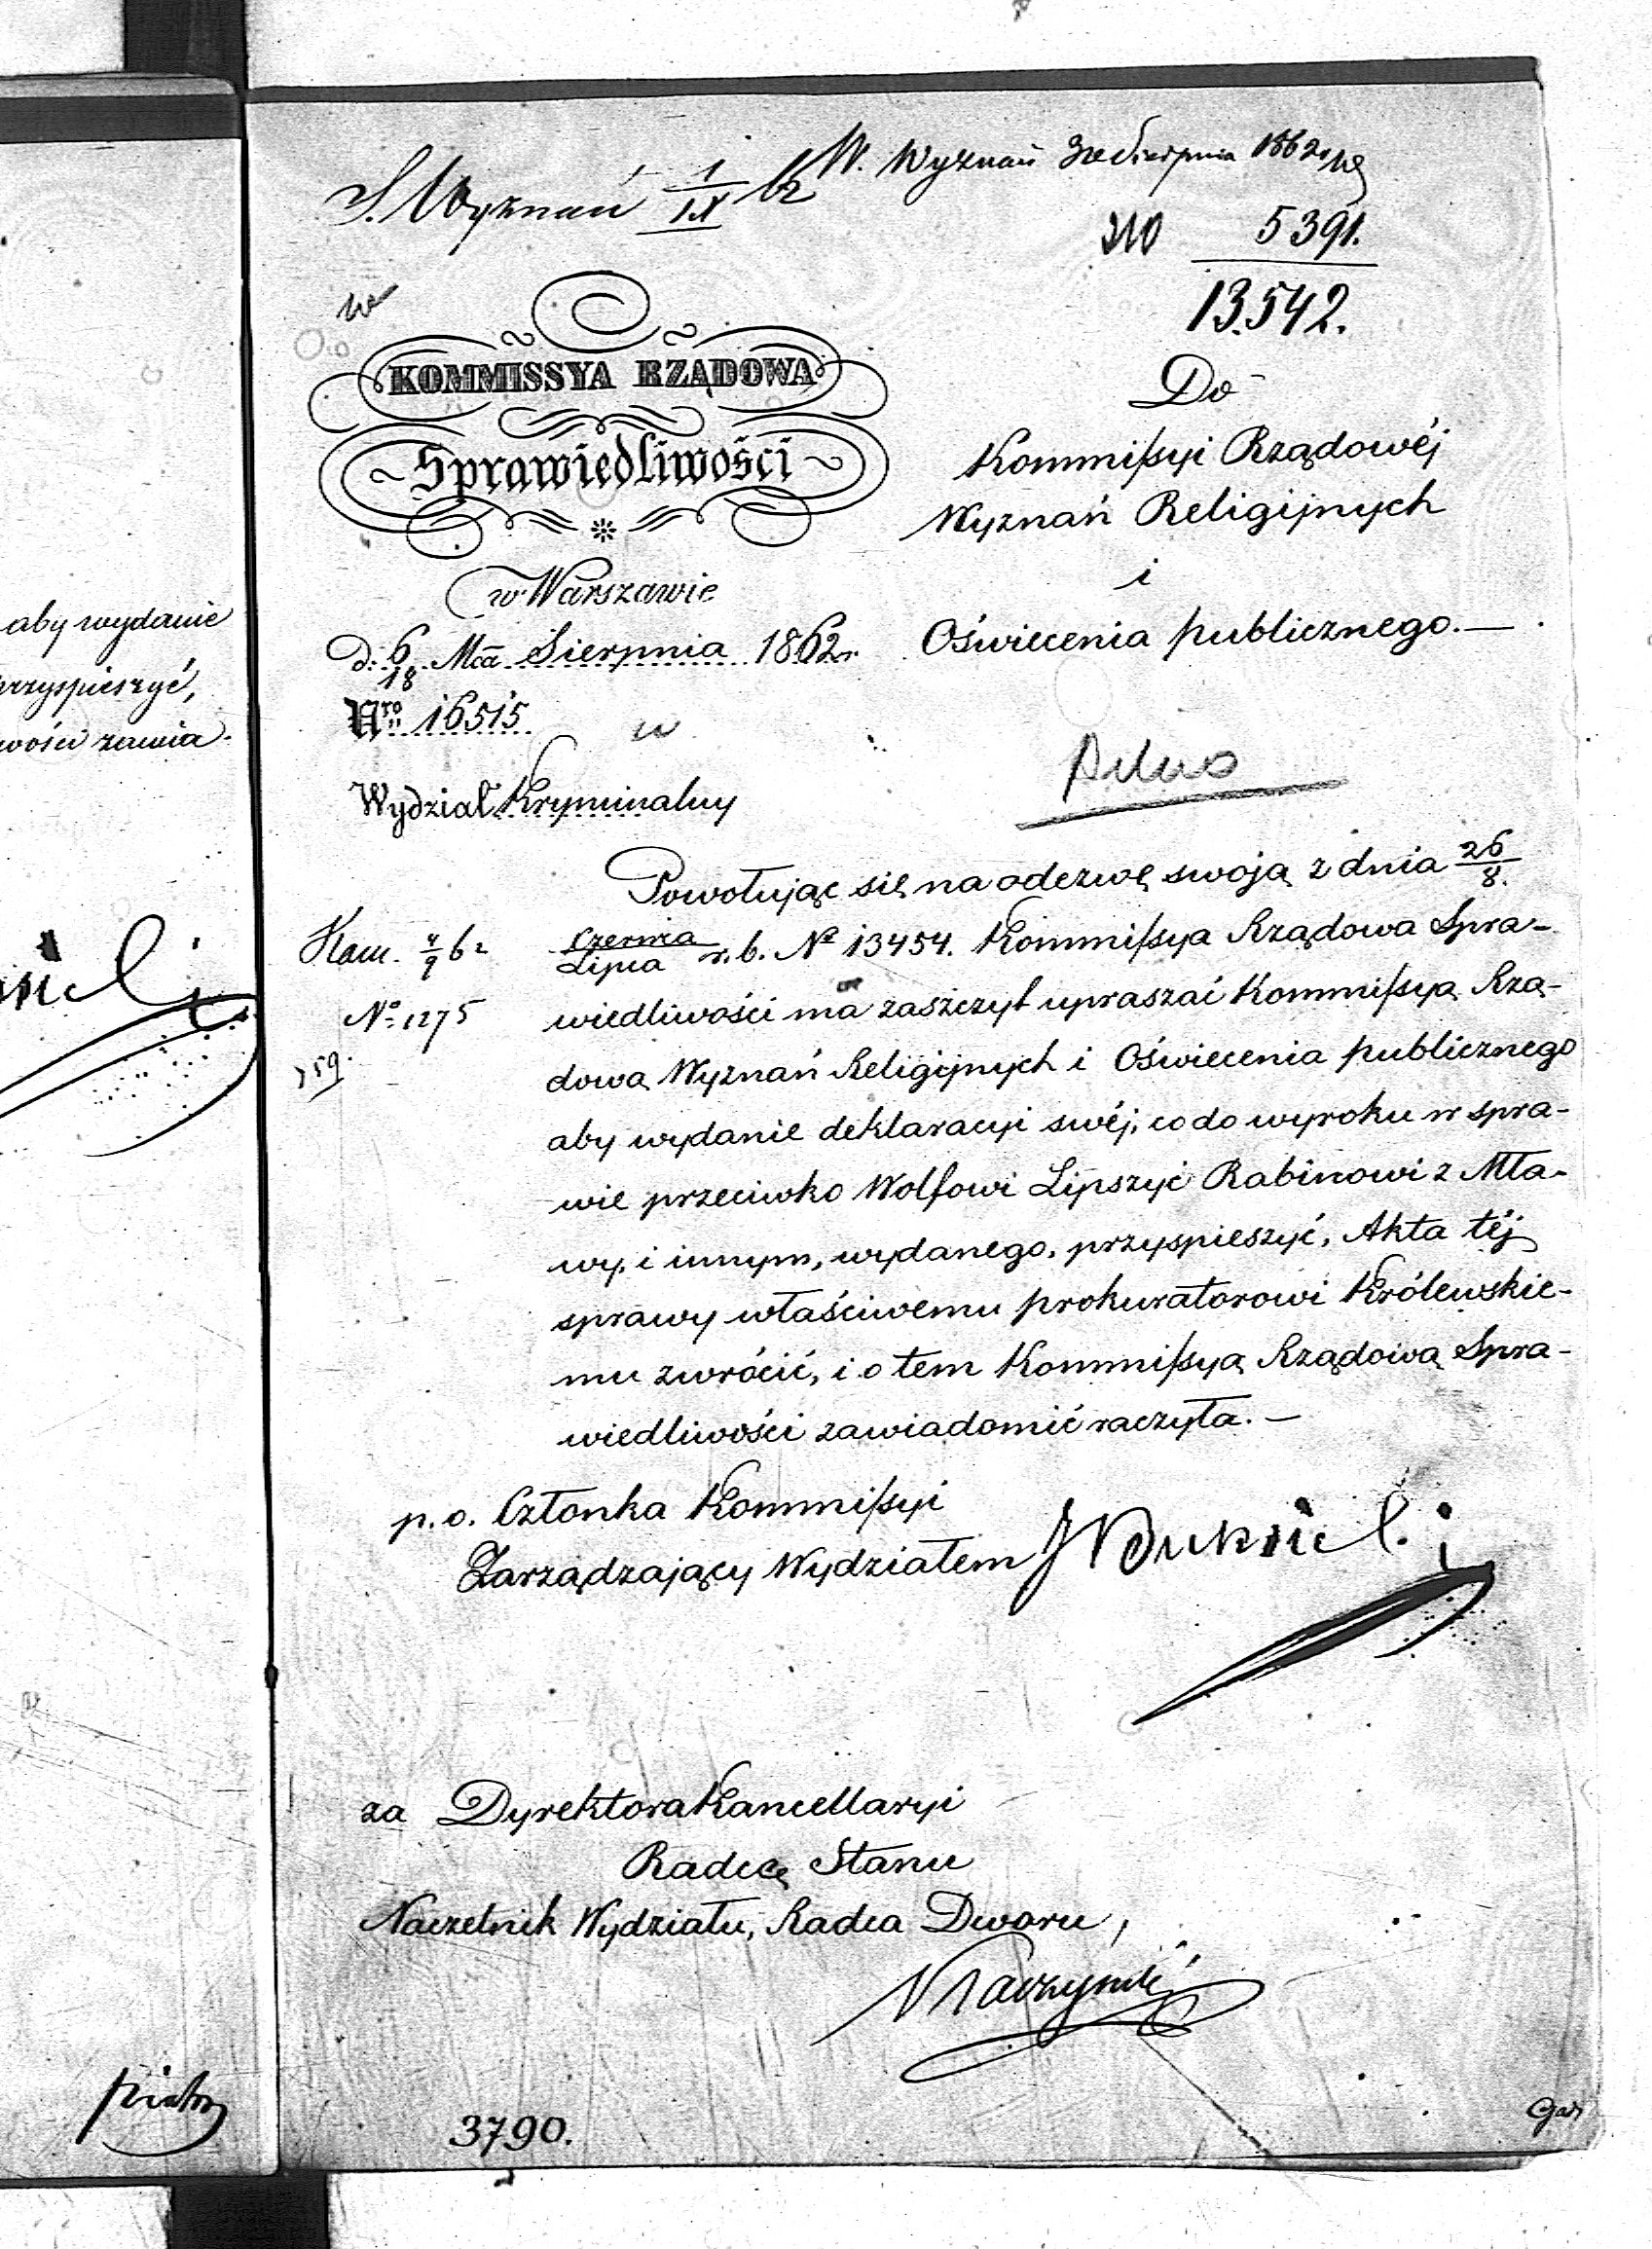 aby wydanie
przyspieszyć,
wości zawia-
S. Wyznań 1/IX 62
W. Wyznań Sierpnia 1862
5391.
13.542.
KOMMISSYA RZĄDOWA
Sprawiedliwości
w Warszawie
d. 6/18 Mca Sierpnia 1862 r.
Nro 16515
Wydział Kryminalny
Do
Kommissyi Rządowéj
Wyznań Religijnych
i
Oświecenia publicznego.—
Pilno
Powołując się na odezwę swoją z dnia 26/8.
Czerwca/Lipca r. b. No 13454. Kommissya Rządowa Spra-
wiedliwości ma zaszczyt upraszać Kommissyą Rzą-
dową Wyznań Religijnych i Oświecenia publicznego
aby wydanie deklaracyi swéj, co do wyroku w spra-
wie przeciwko Wolfowi Lipszyc Rabinowi z Mła-
wy, i innym, wydanego, przyspieszyć, Akta téj
sprawy właściwemu prokuratorowi Królewskie-
mu zwrócić, i o tem Kommissyą Rządową Spra-
wiedliwości zawiadomić raczyła.—
4/9 62
No 1275
p. o. Członka Kommissyi
Zarządzający Wydziałem
za Dyrektora Kancellaryi
Radcę Stanu
Naczelnik Wydziału, Radca Dworu,
3790.